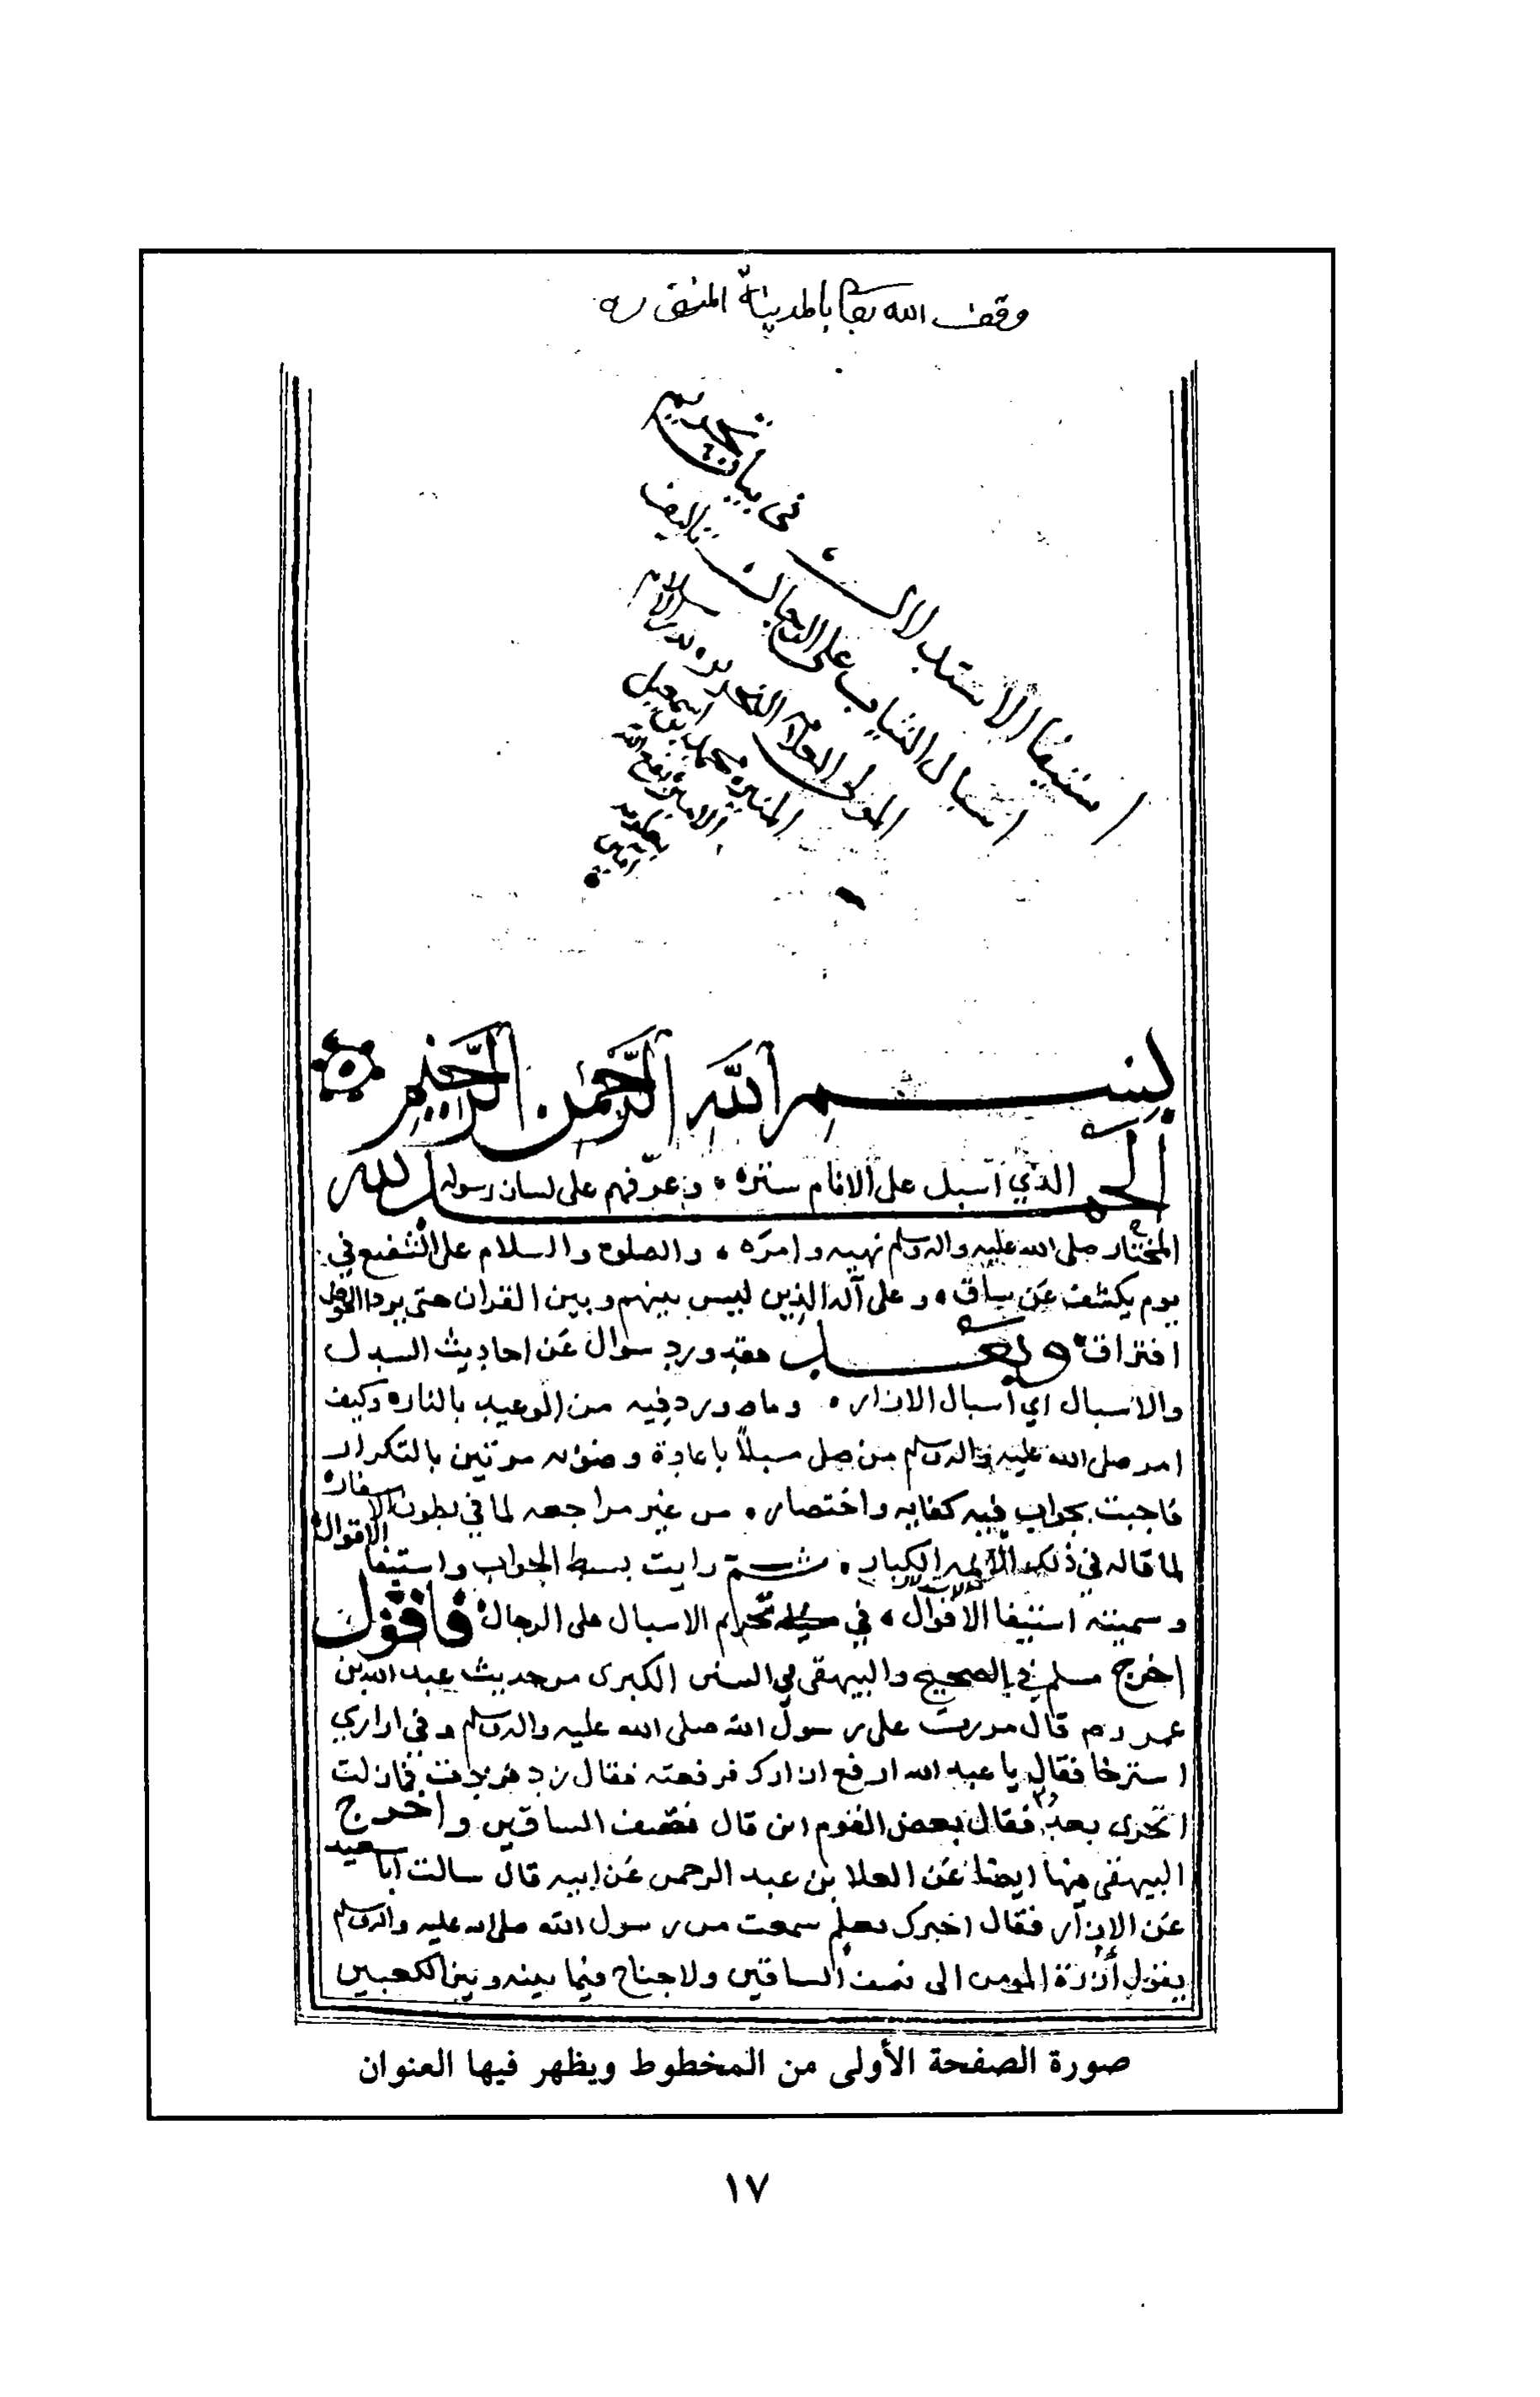 وقف الله تعالى بالمدينة المنوره
استيفا الاستدلال في بيان تحريم
اسبال الثياب على الرجال تاليف
المولى العلامه النحرير بدر الاسلام
المنير محمد بن اسمعيل
الامير
بسم الله الرحمن الرحيم
الحمد لله الذي اسبل على الانام ستره وعرفهم على لسان رسوله
المختار صلى الله عليه واله وسلم نهيه وامره والصلوة والسلام على الشفيع في
يوم يكشف عن ساق وعلى آله الذين ليس بينهم وبين القران حتى يردا الحوض
افتراق وبعد فقد ورد سوال عن احاديث السبل
والاسبال اي اسبال الازار وما ورد فيه من الوعيد بالنار وكيف
امر صلى الله عليه واله وسلم من صلى مسبلا باعادة وضوئه مرتين بالتكرار
فاجبت بجواب فيه كفايه واختصار من غير مراجعه لما في بطون الاسفار
لما قاله في ذلك الائمه الكبار ثم رايت بسط الجواب واستيفا الاقوال
وسميته استيفا الاقوال في تحريم الاسبال على الرجال فاقول
اخرج مسلم في الصحيح والبيهقي في السنن الكبرى من حديث عبد الله بن
عمر قال مررت على رسول الله صلى الله عليه واله وسلم وفي ازاري
استرخا فقال يا عبد الله ارفع ازارك فرفعته فقال زد فزدت فما زلت
اتحرى بعد فقال بعض القوم اين قال نصف الساقين واخرج
البيهقي فيها ايضا عن العلا بن عبد الرحمن عن ابيه قال سالت ابا سعيد
عن الازار فقال اخبرك بعلم سمعت من رسول الله صلى الله عليه واله وسلم
يقول أزرة المومن الى نصف الساقين ولا جناح فيما بينه وبين الكعبين
صورة الصفحة الأولى من المخطوط ويظهر فيها العنوان
١٧